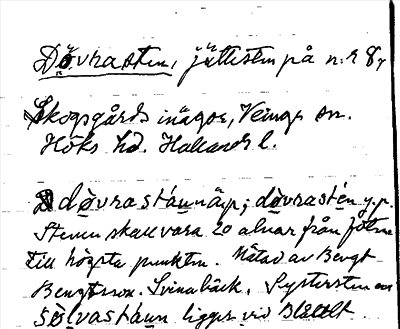 Dövrasten, jättesten på n:r 8,
Skogsgårds inägor, Veinge sn.
Höks hd. Hallands l.
dövrastáunäɲ; dövrastén y.p.
Stenen skall vara 20 alnar från foten
till högsta punkten. Mätad av Bengt
Bengtsson. Svinabäck. Systersten
sölvastáun ligger vid